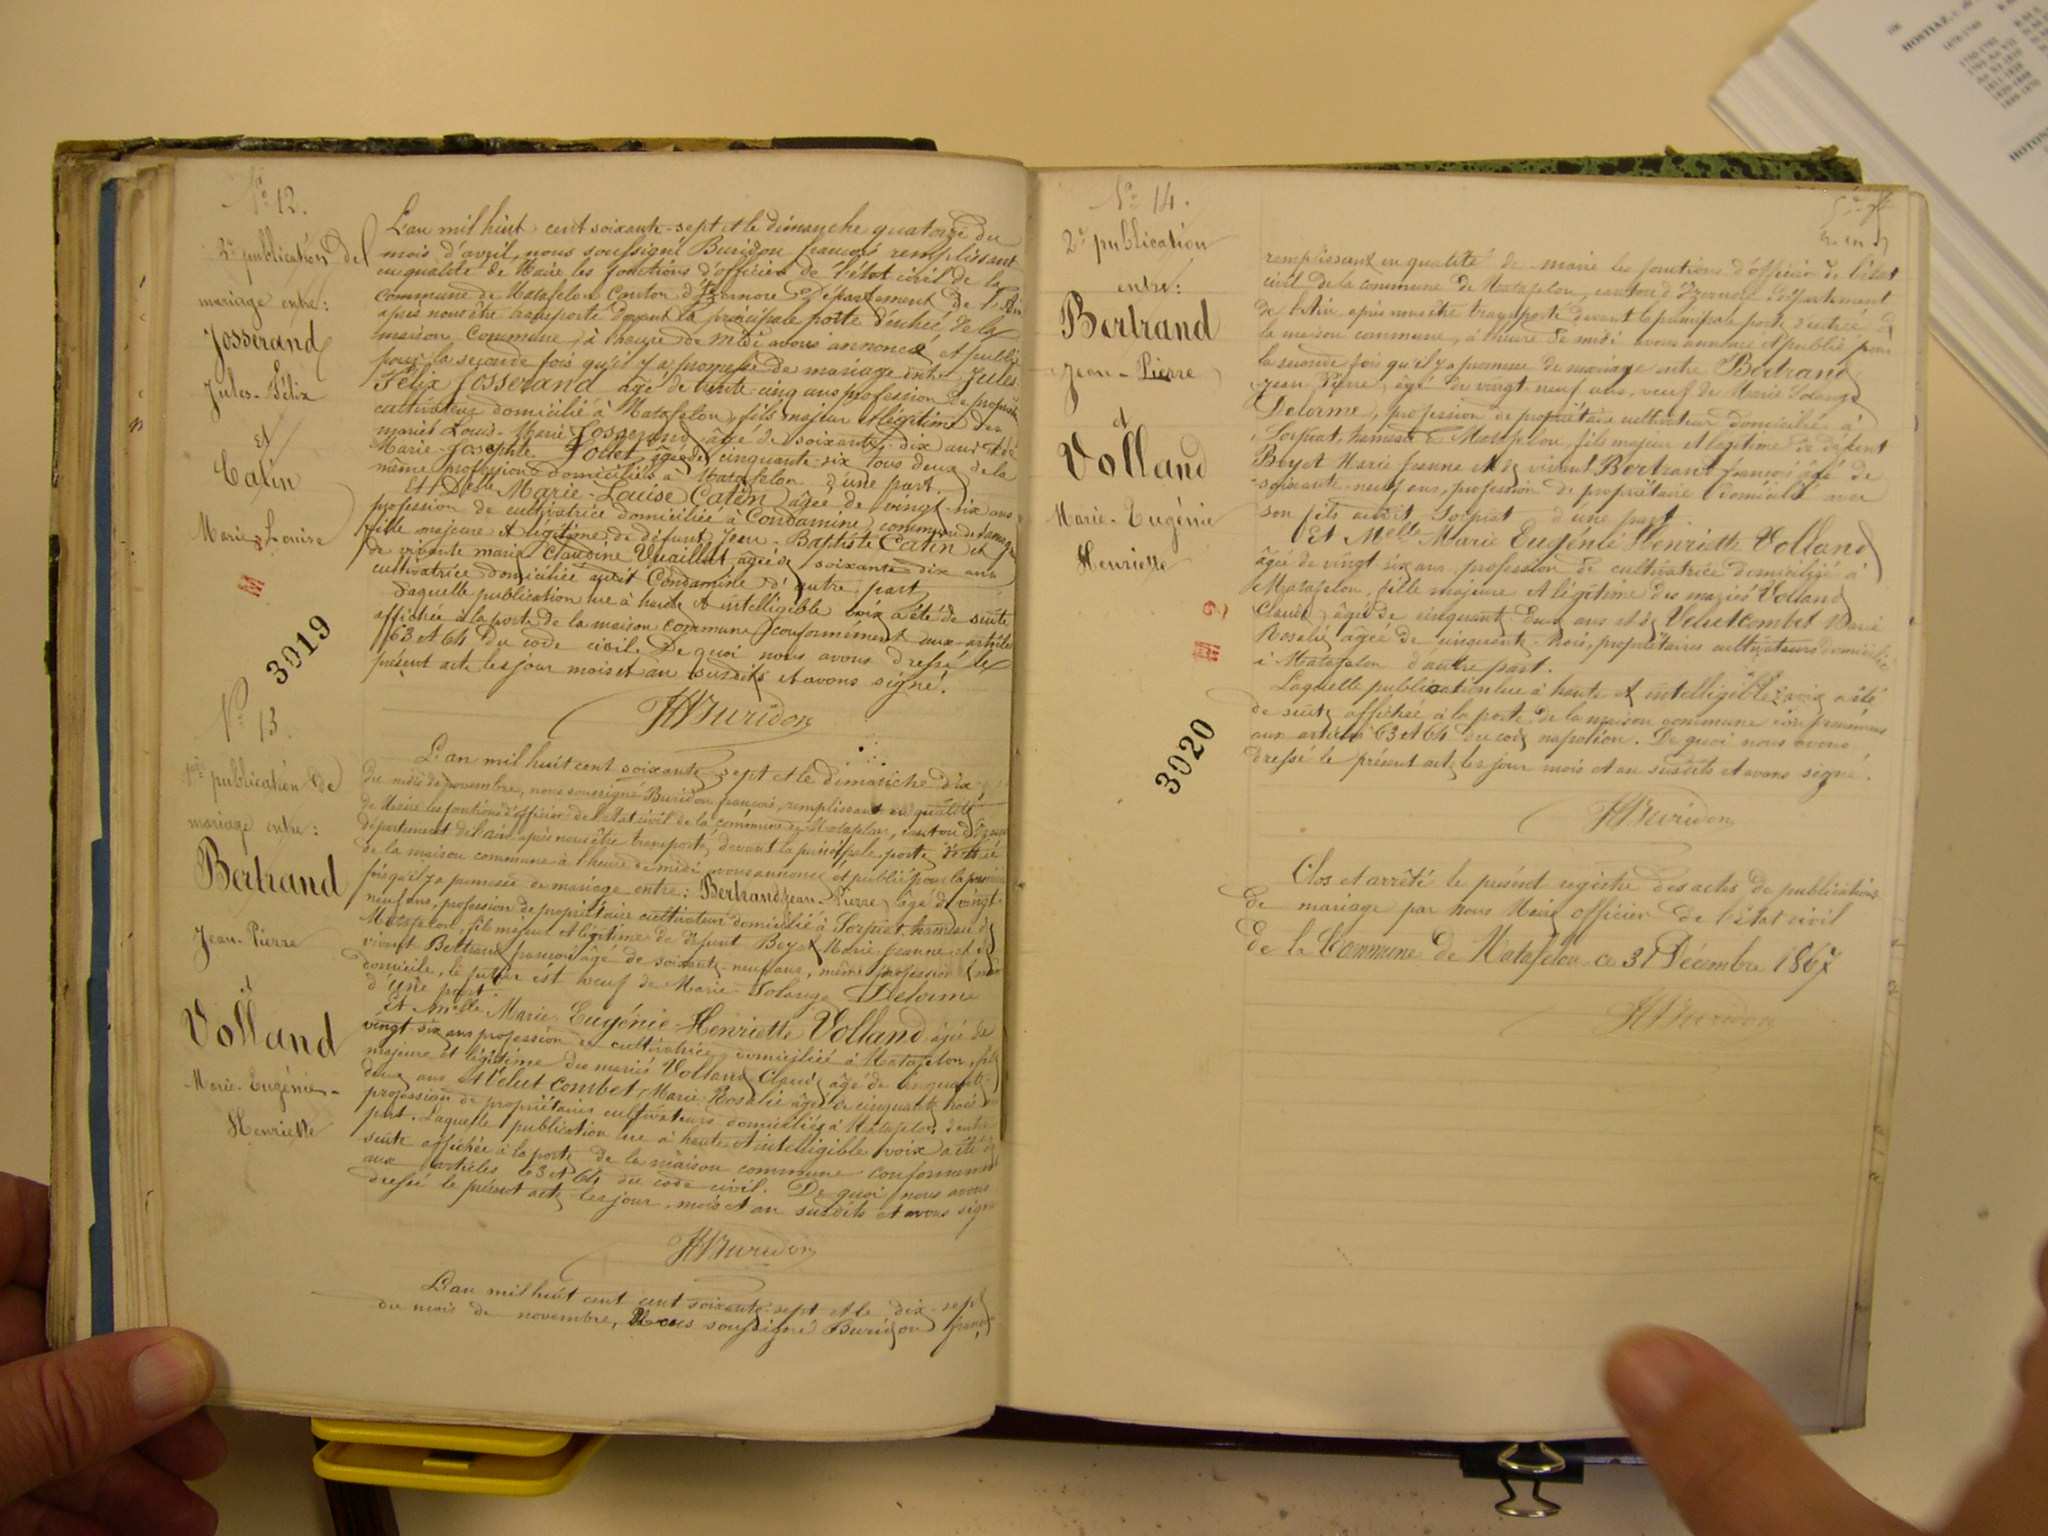 N° 12.
2e publication de
mariage entre :
Josserand
Jules-Félix
et
Catin
Marie-Louise
L'an mil huit cent soixante-sept et le dimanche quatorze du
mois d'avril, nous soussigné Buridon françois remplissant
en qualité de Maire les fonctions d'officier de l'état civil de la
commune de Matafelon Canton d'Izernore Département de l'Ain
après nous être transporté devant la principale porte d'entrée de la
maison Commune, à l'heure de midi avons annoncé et publié
pour la seconde fois qu'il y a promesse de mariage entre Jules
Félix Josserand âgé de trente cinq ans profession de propriétaire
cultivateur domicilié à Matafelon, fils majeur et légitime des
mariés Louis-Marie Josserand âgé de soixante-dix ans et de
Marie-Josephte Jollet âgée de cinquante-six tous deux de la
même profession domiciliés à Matafelon d'une part.
Et Delle Marie-Louise Catin âgée de vingt-six ans
profession de cultivatrice domiciliée à Condamine commune de
fille majeure et légitime de défunt Jean-Baptiste Catin et
de vivante marie Claudine Vuaillat âgée de soixante dix ans
cultivatrice domiciliée audit Condamine d'autre part
Laquelle publication lue à haute et intelligible voix a été de suite
affichée à la porte de la maison commune conformément aux articles
63 et 64 du code civil. De quoi nous avons dressé le
présent acte les jour mois et an susdits et avons signé.
Buridon
3019
N° 13.
1re publication de
mariage entre :
Bertrand
Jean-Pierre
et
Volland
Marie-Eugénie-
Henriette
L'an mil huit cent soixante-sept et le dimanche dix
du mois de novembre, nous soussigné Buridon françois, remplissant en qualité
de Maire les fonctions d'officier de l'état civil de la commune de Matafelon, canton d'Izernore
département de l'ain après nous être transporté devant la principale porte d'entrée
de la maison commune à l'heure de midi avons annoncé et publié pour la première
fois qu'il y a promesse de mariage entre : Bertrand Jean-Pierre âgé de vingt-
neuf ans, profession de propriétaire cultivateur domicilié à Sorpiat hameau de
Matafelon, fils majeur et légitime de défunt Beyet Marie Jeanne et de
vivant Bertrand françois âgé de soixante-neuf ans, même profession et même
domicile, le futur est veuf de Marie-Solange Delorme
d'une part.
Et Melle Marie Eugénie-Henriette Volland âgée de
vingt six ans profession de cultivatrice, domiciliée à Matafelon, fille
majeure et légitime des mariés Volland Claude âgé de cinquante-
deux ans et Velut combet Marie Rosalie âgée de cinquante trois
profession de propriétaires cultivateurs domiciliés à Matafelon d'autre
part. Laquelle publication lue à haute et intelligible voix a été de
suite affichée à la porte de la maison commune conformément
aux articles 63 et 64 du code civil. De quoi nous avons
dressé le présent acte les jour, mois et an susdits et avons signé
Buridon
L'an mil huit cent cent soixante-sept et le dix-sept
du mois de novembre, Nous soussigné Buridon françois
N° 14.
2e publication
entre :
Bertrand
Jean-Pierre
et
Volland
Marie-Eugénie
Henriette
3020
remplissant en qualité de maire les fonctions d'officier de l'état
civil de la commune de Matafelon, canton d'Izernore Département
de l'ain après nous être transporté devant la principale porte d'entrée de
la maison commune, à l'heure de midi avons annoncé et publié pour
la seconde fois qu'il y a promesse de mariage entre Bertrand
Jean Pierre, âgé de vingt-neuf ans, veuf de Marie Solange
Delorme, profession de propriétaire cultivateur domicilié à
Sorpiat, hameau de Matafelon, fils majeur et légitime de défunt
Beyet Marie Jeanne et de vivant Bertrand françois âgé de
soixante-neuf ans, profession de propriétaire domicilié avec
son fils audit Sorpiat d'une part.
Et Melle Marie Eugénie Henriette Volland
âgée de vingt six ans profession de cultivatrice domiciliée à
Matafelon, fille majeure et légitime des mariés Volland
Claude âgé de cinquante Deux ans et de Velut combet Marie
Rosalie âgée de cinquante-trois, propriétaires cultivateurs domiciliés
à Matafelon d'autre part.
Laquelle publication lue à haute et intelligible voix a été
de suite affichée à la porte de la maison commune conformément
aux articles 63 et 64 du code napoléon. De quoi nous avons
dressé le présent acte les jour mois et an susdits et avons signé.
Buridon
Clos et arrêté le présent registre des actes de publications
de mariage par Nous Maire officier de l'état civil
de la Commune de Matafelon ce 31 Décembre 1867
Buridon